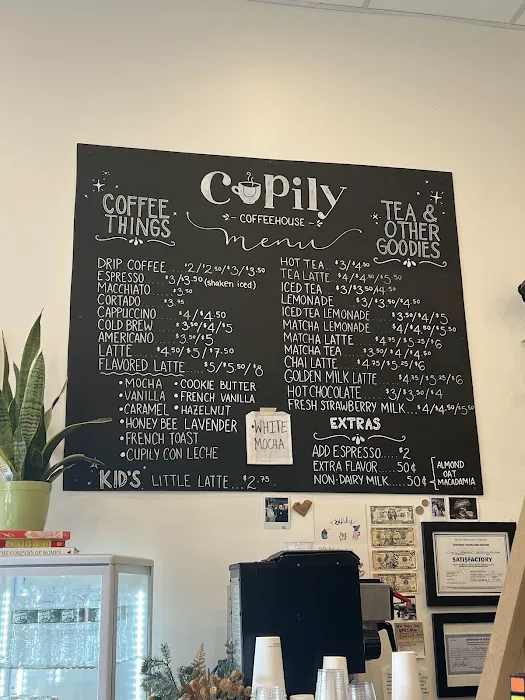 Cupily
COFFEEHOUSE
menu
COFFEE
THINGS
DRIP COFFEE $2/$2.50/$3/$3.50
ESPRESSO $3/$3.50 (shaken iced)
MACCHIATO $3.50
CORTADO $3.75
CAPPUCCINO $4/$4.50
COLD BREW $3.50/$4/$5
AMERICANO $3.50/$5
LATTE $4.50/$5/$7.50
FLAVORED LATTE $5/$5.50/$8
• MOCHA • COOKIE BUTTER
• VANILLA • FRENCH VANILLA
• CARAMEL • HAZELNUT
• HONEY BEE LAVENDER
• FRENCH TOAST
• CUPILY CON LECHE
• WHITE
MOCHA
KID'S LITTLE LATTE...$2.75
TEA &
OTHER
GOODIES
HOT TEA $3/$4.50
TEA LATTE $4/$4.50/$5.50
ICED TEA $3/$3.50/$4.50
LEMONADE $3/$3.50/$4.50
ICED TEA LEMONADE $3.50/$4/$5
MATCHA LEMONADE $4/$4.50/$5.50
MATCHA LATTE $4.75/$5.25/$6
MATCHA TEA $3.50/$4/$4.50
CHAI LATTE $4.75/$5.25/$6
GOLDEN MILK LATTE $4.75/$5.25/$6
HOT CHOCOLATE $3/$3.50/$4
FRESH STRAWBERRY MILK $4/$4.50/$5.50
EXTRAS
ADD ESPRESSO.....$2
EXTRA FLAVOR.....50¢
NON-DAIRY MILK....50¢
ALMOND
OAT
MACADAMIA
SATISFACTORY